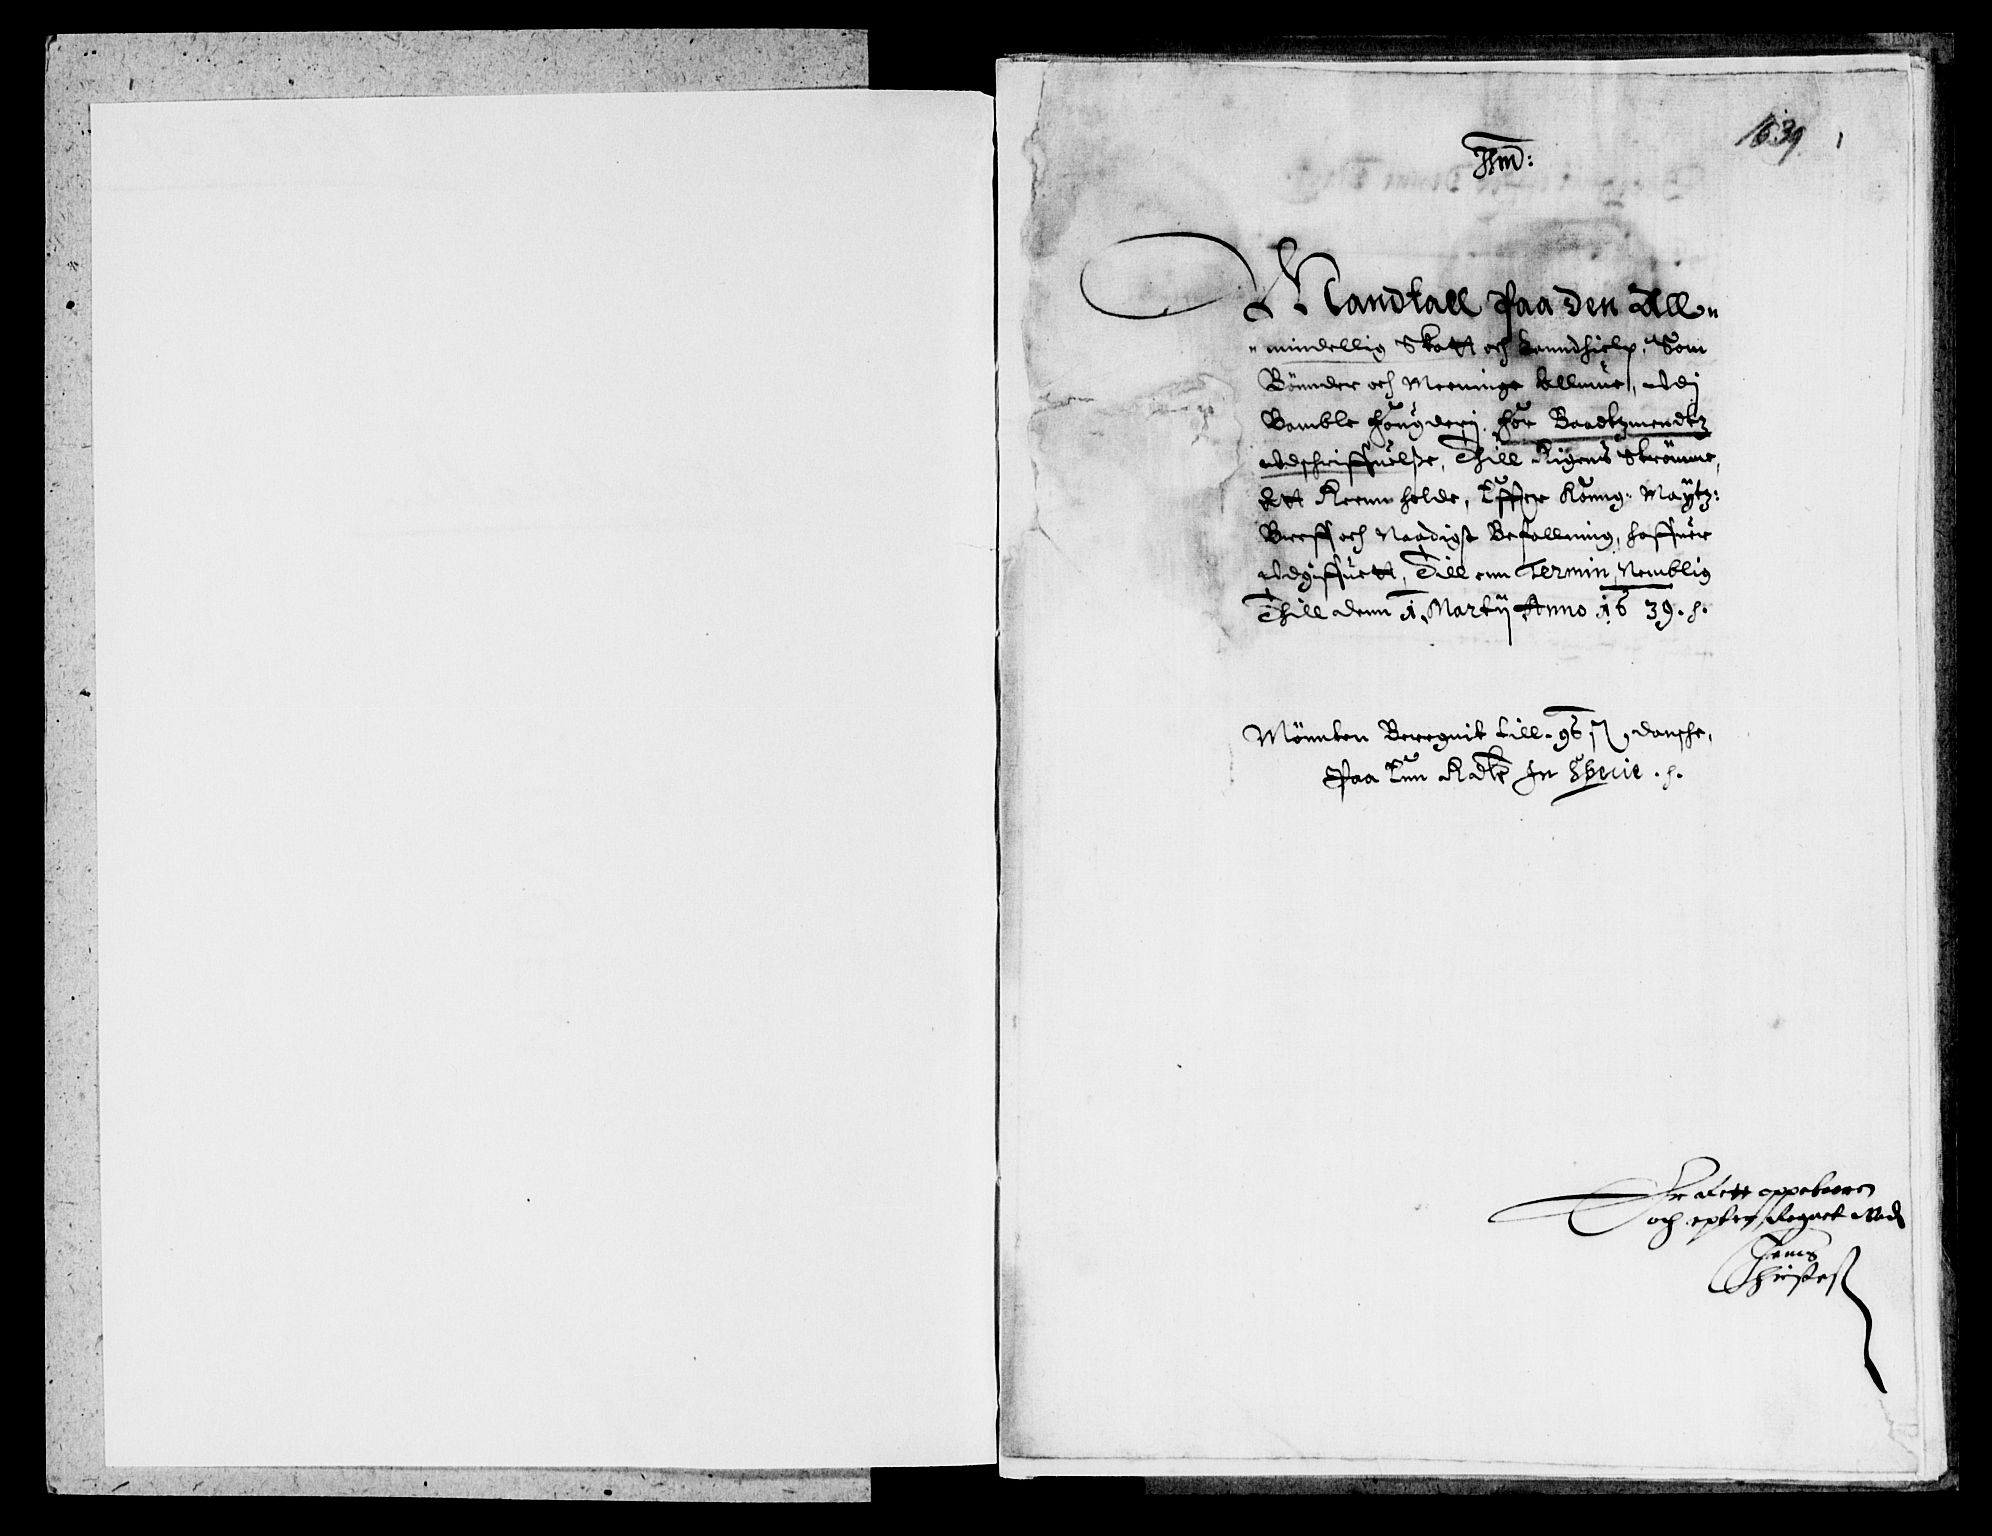 1639
1
Mandtall Paa den All¬
mindellig Skatt och Lanndhielp, Som
Bönnder och Meeninge Allmue, udj
Bamble fougderij, for Baadtzmendtz
udschriffuelße, Thill Rigens Strömme,
att Reen holde, Effter Konng: Maytz:
Breff och Naadigst Befallning, haffuer
udgiffuett, Till enn Termin, Nemblig
Thill denn 1 Martij Anno 1639.
Mönnten Beregnit till 96 ß, danske,
Paa Een Rdlr In Specie.
Er Rett oppebaaren
och epter Regnet Med
Jenns